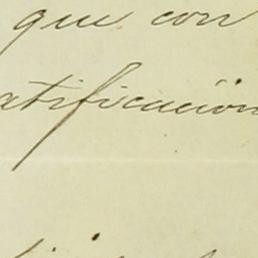 que con
atificación